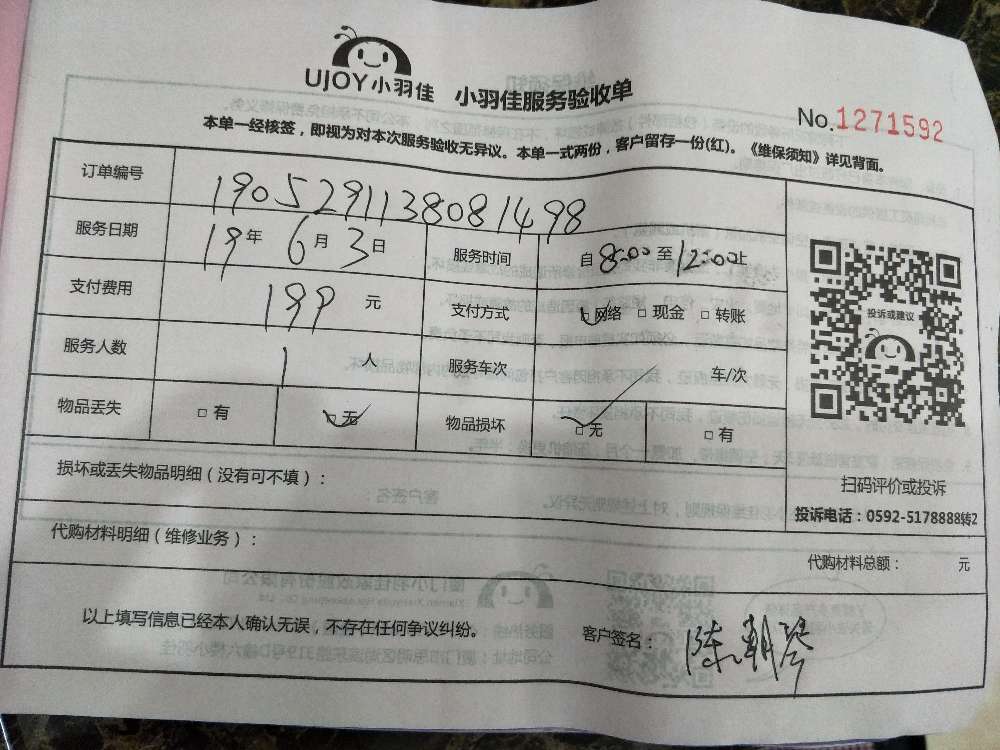 UJOY小羽佳 小羽佳服务验收单
No.1271592
本单一经核签，即视为对本次服务验收无异议。本单一式两份，客户留存一份(红)。《维保须知》详见背面。
订单编号 1905291138081498
服务日期 19年6月3日 服务时间 自8:00至12:00止
支付费用 199元 支付方式 □网络 □现金 □转账
服务人数 1人 服务车次 车/次
物品丢失 □有 □无 物品损坏 □无 □有
投诉或建议
扫码评价或投诉
投诉电话：0592-5178888转2
损坏或丢失物品明细（没有可不填）：
代购材料明细（维修业务）：
代购材料总额： 元
以上填写信息已经本人确认无误，不存在任何争议纠纷。
客户签名：陈朝琴